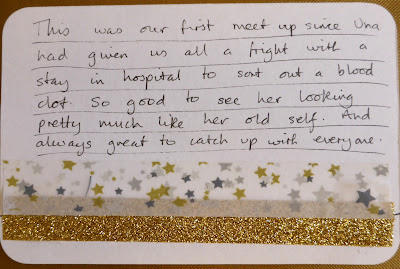 This was our first meet up since Una
had given us all a fright with a
stay in hospital to sort out a blood
clot. So good to see her looking
pretty much like her old self. And
always great to catch up with everyone.